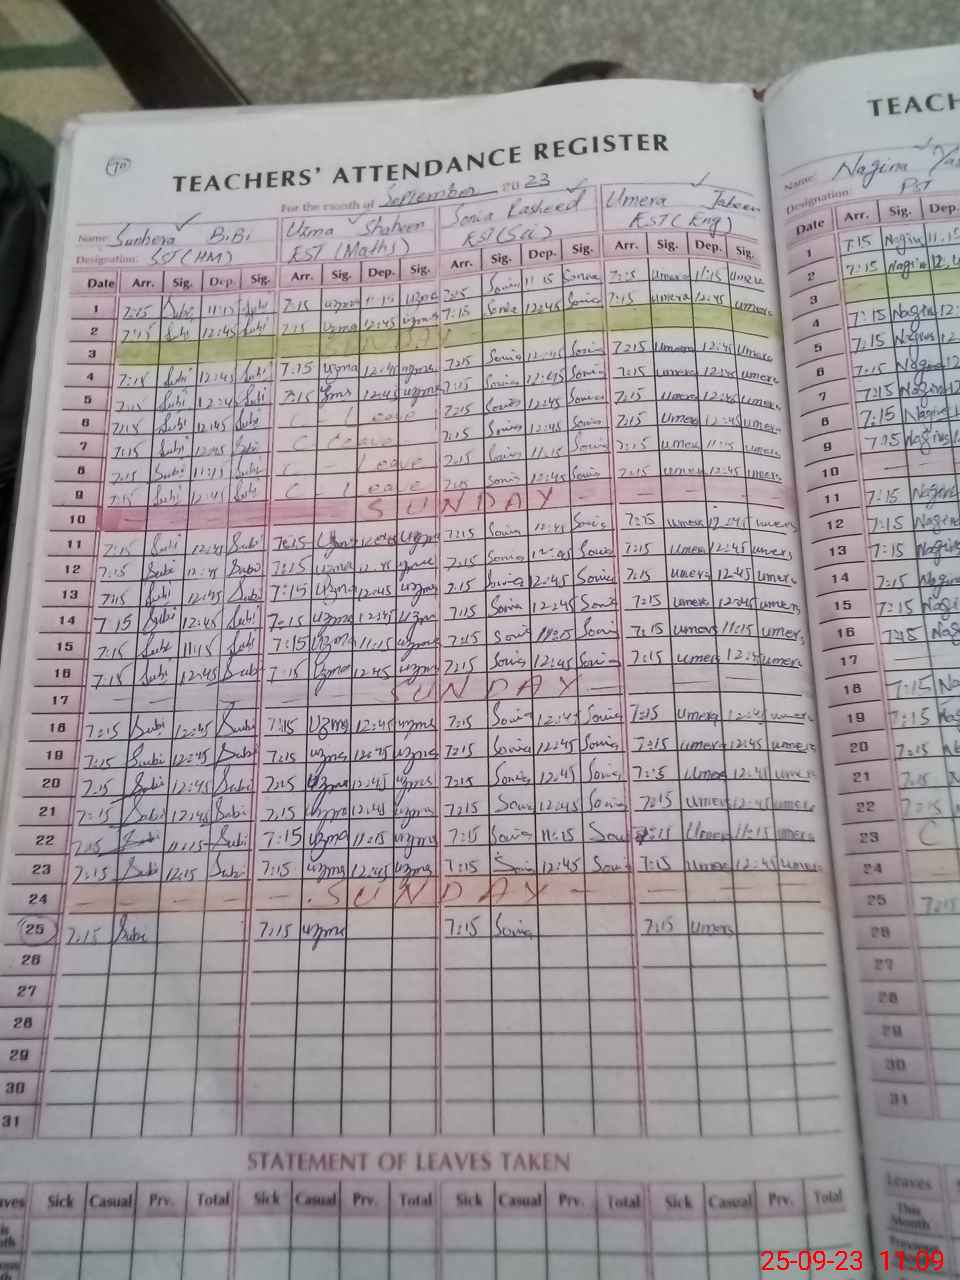 70
TEACHERS' ATTENDANCE REGISTER
TEACH
For the month of September 2023
Name: Sunbera BiBi Uzma Shaheen Sonia Rasheed Umera Name: Nagina
Designation: SST (HM) EST (Maths) EST (Sci) EST (Eng) Designation: PST
Date Arr. Sig. Dep. Sig. Arr. Sig. Dep. Sig. Arr. Sig. Dep. Sig. Arr. Sig. Dep. Sig. Date Arr. Sig. Dep.
1 7:15 Subi 11:15 Subi 7:15 uzma 11:15 uzma 7:15 Sonia 11:15 Sonia 7:15 umera 11:15 umera 1 7:15 Nagina 11:15
2 7:15 Subi 12:45 Subi 7:15 uzma 12:45 uzma 7:15 Sonia 12:45 Sonia 7:15 umera 12:45 umera 2 7:15 Nagina
3 SUNDAY 3
4 7:15 Subi 12:45 Subi 7:15 uzma 12:45 uzma 7:15 Sonia 12:45 Sonia 7:15 Umera 12:45 Umera 4 7:15 Nagina 12:
5 7:15 Subi 12:45 Subi 7:15 uzma 12:45 uzma 7:15 Sonia 12:45 Sonia 7:15 umera 12:45 umera 5 7:15 Nagina 12:
6 7:15 Subi 12:45 Subi C - Leave 7:15 Sonia 12:45 Sonia 7:15 umera 12:45 umera 6 7:15 Nagina 12
7 7:15 Subi 12:45 Subi C Leave 7:15 Sonia 12:45 Sonia 7:15 Umera 12:45 umera 7 7:15 Nagina 12
8 7:15 Subi 11:15 Subi C - Leave 7:15 Sonia 11:15 Sonia 7:15 umera 11:15 umera 8 7:15 Nagina
9 7:15 Subi 12:45 Subi C - Leave 7:15 Sonia 12:45 Sonia 7:15 umera 12:45 umera 9 7:15 Nagina
10 SUNDAY 10
11 7:15 Subi 12:45 Subi 7:15 Uzma 12:45 Uzma 7:15 Sonia 12:45 Sonia 7:15 umera 12:45 umera 11 7:15 Nagina
12 7:15 Subi 12:45 Subi 7:15 uzma 12:45 uzma 7:15 Sonia 12:45 Sonia 7:15 umera 12:45 umera 12 7:15 Nagina
13 7:15 Subi 12:45 Subi 7:15 uzma 12:45 uzma 7:15 Sonia 12:45 Sonia 7:15 umera 12:45 umera 13 7:15 Nagina
14 7:15 Subi 12:45 Subi 7:15 uzma 12:45 uzma 7:15 Sonia 12:45 Sonia 7:15 umera 12:45 umera 14 7:15
15 7:15 Subi 11:15 Subi 7:15 uzma 11:15 uzma 7:15 Sonia 11:15 Sonia 7:15 umera 11:15 umera 15 7:15
16 7:15 Subi 12:45 Subi 7:15 Uzma 12:45 uzma 7:15 Sonia 12:45 Sonia 7:15 umera 12:45 umera 16 7:15
17 SUNDAY 17
18 7:15 Subi 12:45 Subi 7:15 Uzma 12:45 uzma 7:15 Sonia 12:45 Sonia 7:15 umera 12:45 umera 18 7:15
19 7:15 Subi 12:45 Subi 7:15 uzma 12:45 uzma 7:15 Sonia 12:45 Sonia 7:15 umera 12:45 umera 19 7:15
20 7:15 Subi 12:45 Subi 7:15 Uzma 12:45 uzma 7:15 Sonia 12:45 Sonia 7:15 Umera 12:45 umera 20 7:15
21 7:15 Subi 12:45 Subi 7:15 Uzma 12:45 uzma 7:15 Sonia 12:45 Sonia 7:15 Umera 12:45 umera 21 7:15
22 7:15 Subi 11:15 Subi 7:15 uzma 11:15 uzma 7:15 Sonia 11:15 Sonia 7:15 Umera 11:15 umera 22 7:15
23 7:15 Subi 12:15 Subi 7:15 uzma 12:45 uzma 7:15 Sonia 12:45 Sonia 7:15 Umera 12:45 umera 23 C
24 SUNDAY 24
25 7:15 Subi 7:15 uzma 7:15 Sonia 7:15 umera 25 7:15
26 26
27 27
28 28
29 29
30 30
31 31
STATEMENT OF LEAVES TAKEN
Sick Casual Prv. Total Sick Casual Prv. Total Sick Casual Prv. Total Sick Casual Prv. Total Leaves
This Month
Previous
25-09-23 11:09